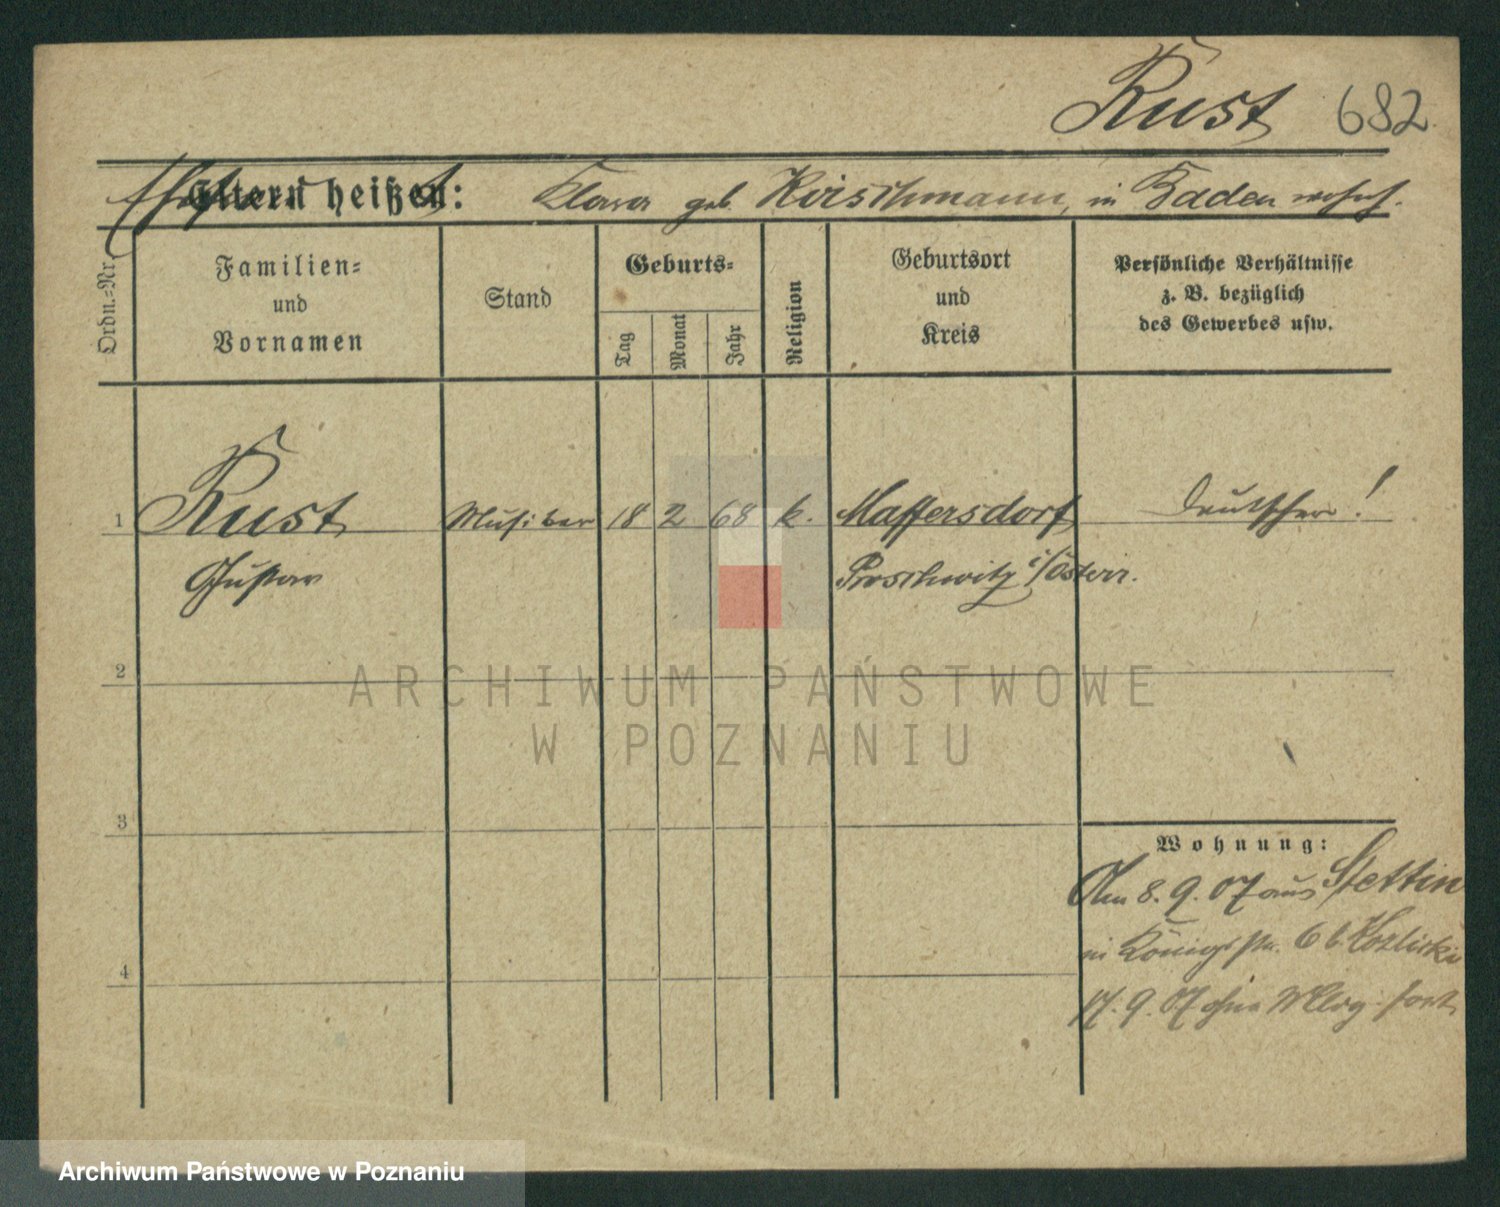 Rust 682
Eltern heißen: Klara geb. Kirschmann, in Baden wohnh.
Ordn.-Nr.
Familien-
und
Vornamen
Stand
Geburts-
Tag
Monat
Jahr
Religion
Geburtsort
und
Kreis
Persönliche Verhältnisse
z. B. bezüglich
des Gewerbes usw.
1 Rust Musiker 18 2 68 k. Maffersdorf Deutscher!
Gustav Proschwitz i/Österr.
2
ARCHIWUM PAŃSTWOWE
W POZNANIU
3
Wohnung:
Am 8. 9. 07 aus Stettin
in Königstr. 6 b. Kozlicki
17. 9. 07 ohne Mldg. fort
4
Archiwum Państwowe w Poznaniu